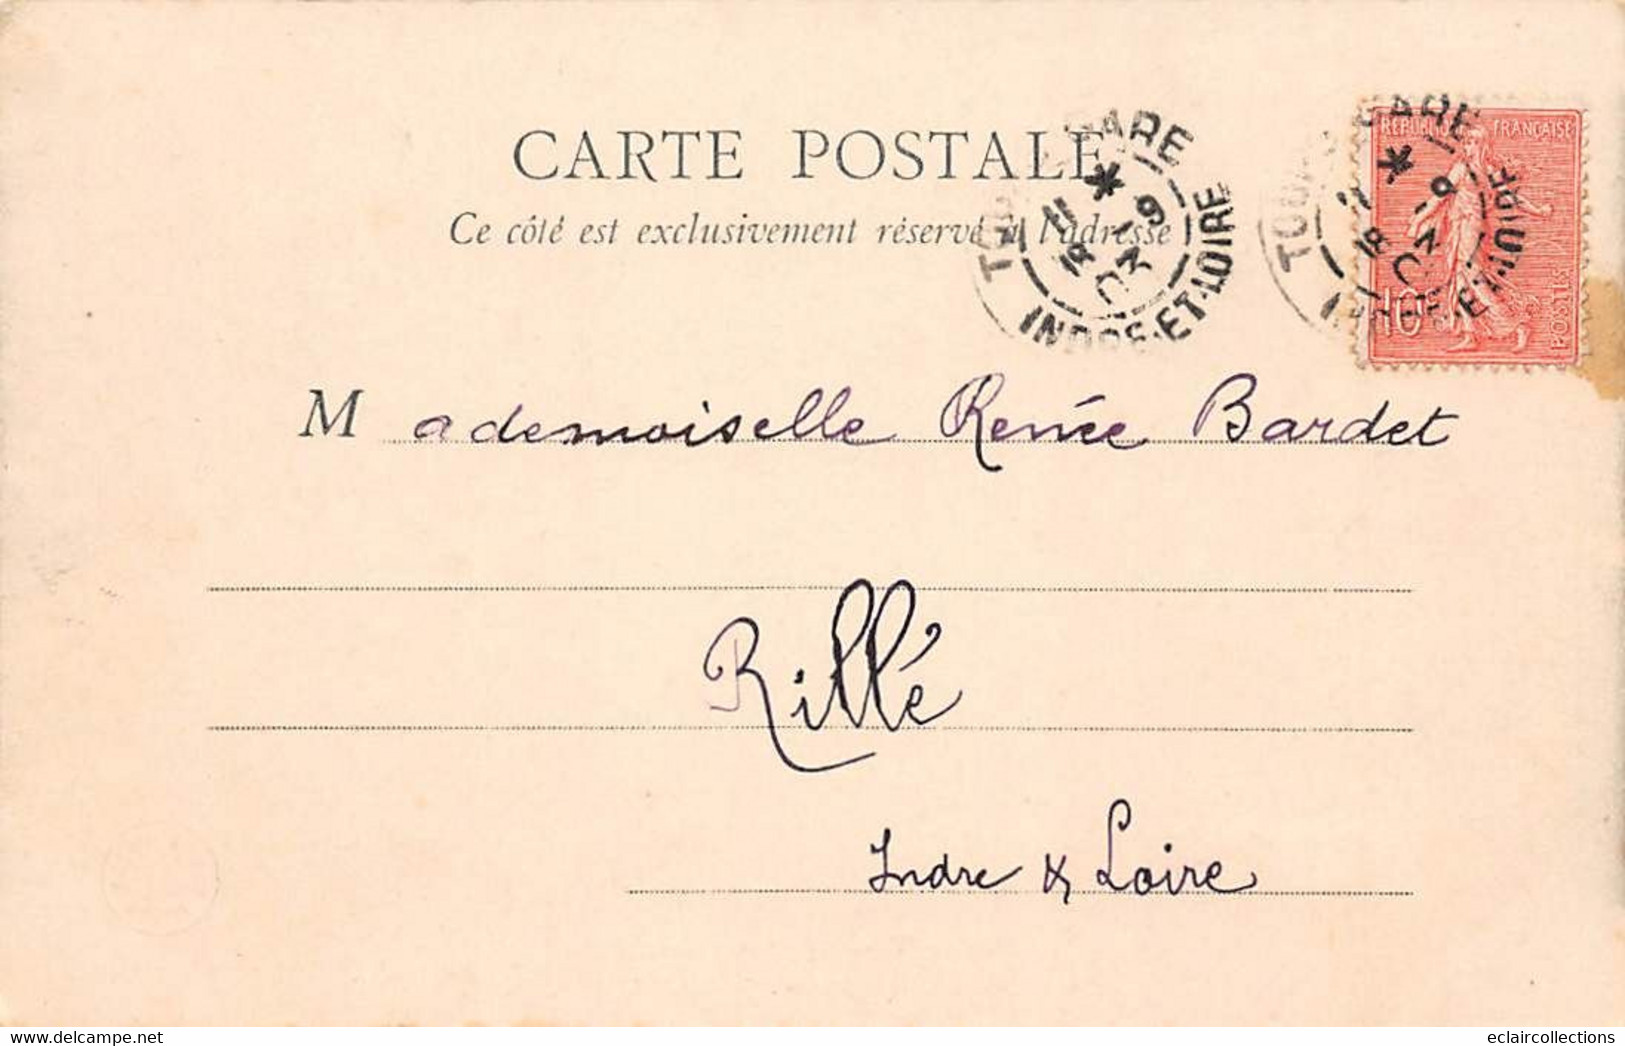 CARTE POSTALE
Ce côté est exclusivement réservé à l'adresse
GARE
INDRE-ET-LOIRE
GARE
INDRE-ET-LOIRE
REPUBLIQUE FRANÇAISE
10
POSTES
Mademoiselle Renée Bardet
Rillé
Indre & Loire
delcampe.net
eclaircollections